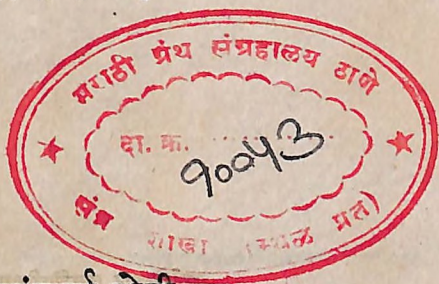 मराठी ग्रंथ संग्रहालय ठाणे
दा. क्र. ............
१००५३
शाखा (स्थळ प्रत)